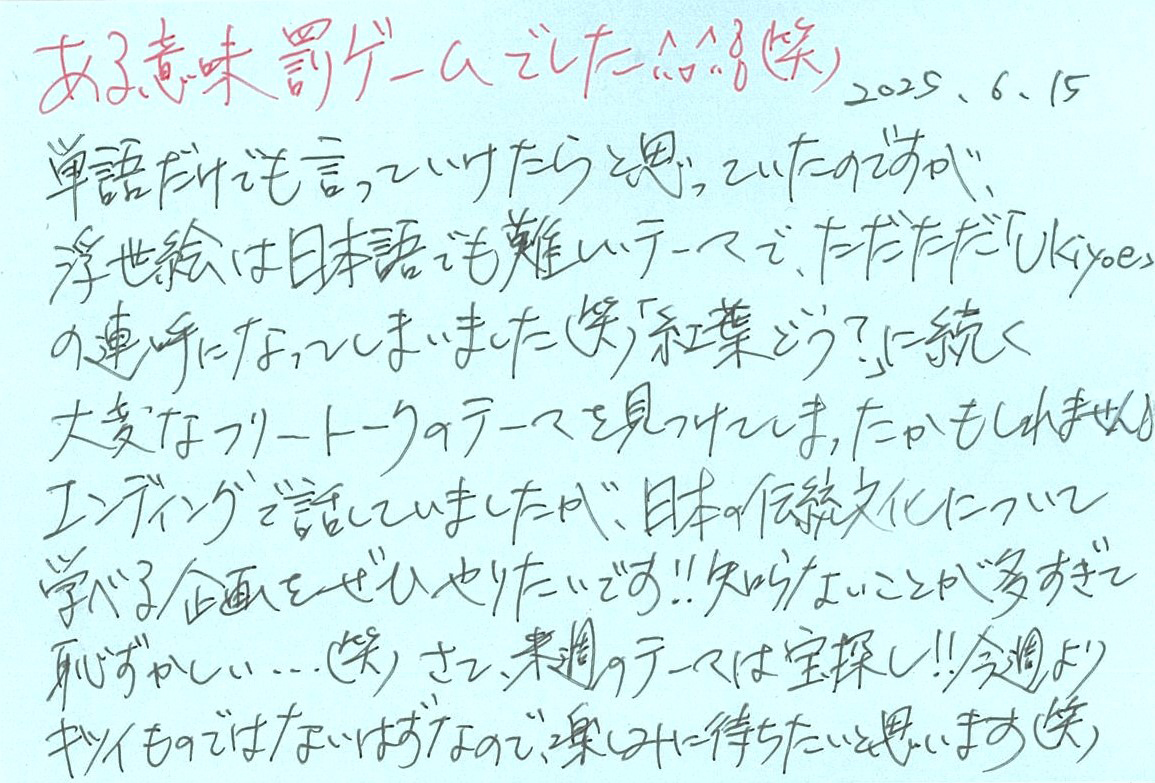 ある意味罰ゲームでした^^;(笑)
2025、6、15
単語だけでも言っていけたらと思っていたのですが、
浮世絵は日本語でも難しいテーマで、ただただ「Ukiyoe」
の連呼になってしまいました(笑)「紅葉どう?」に続く
大変なフリートークのテーマを見つけてしまったかもしれません。
エンディングで話していましたが、日本の伝統文化について
学べる企画をぜひやりたいです!!知らないことが多すぎて
恥ずかしい...(笑) さて、来週のテーマは宝探し!!今週より
キツイものではないはずなので、楽しみに待ちたいと思います(笑)